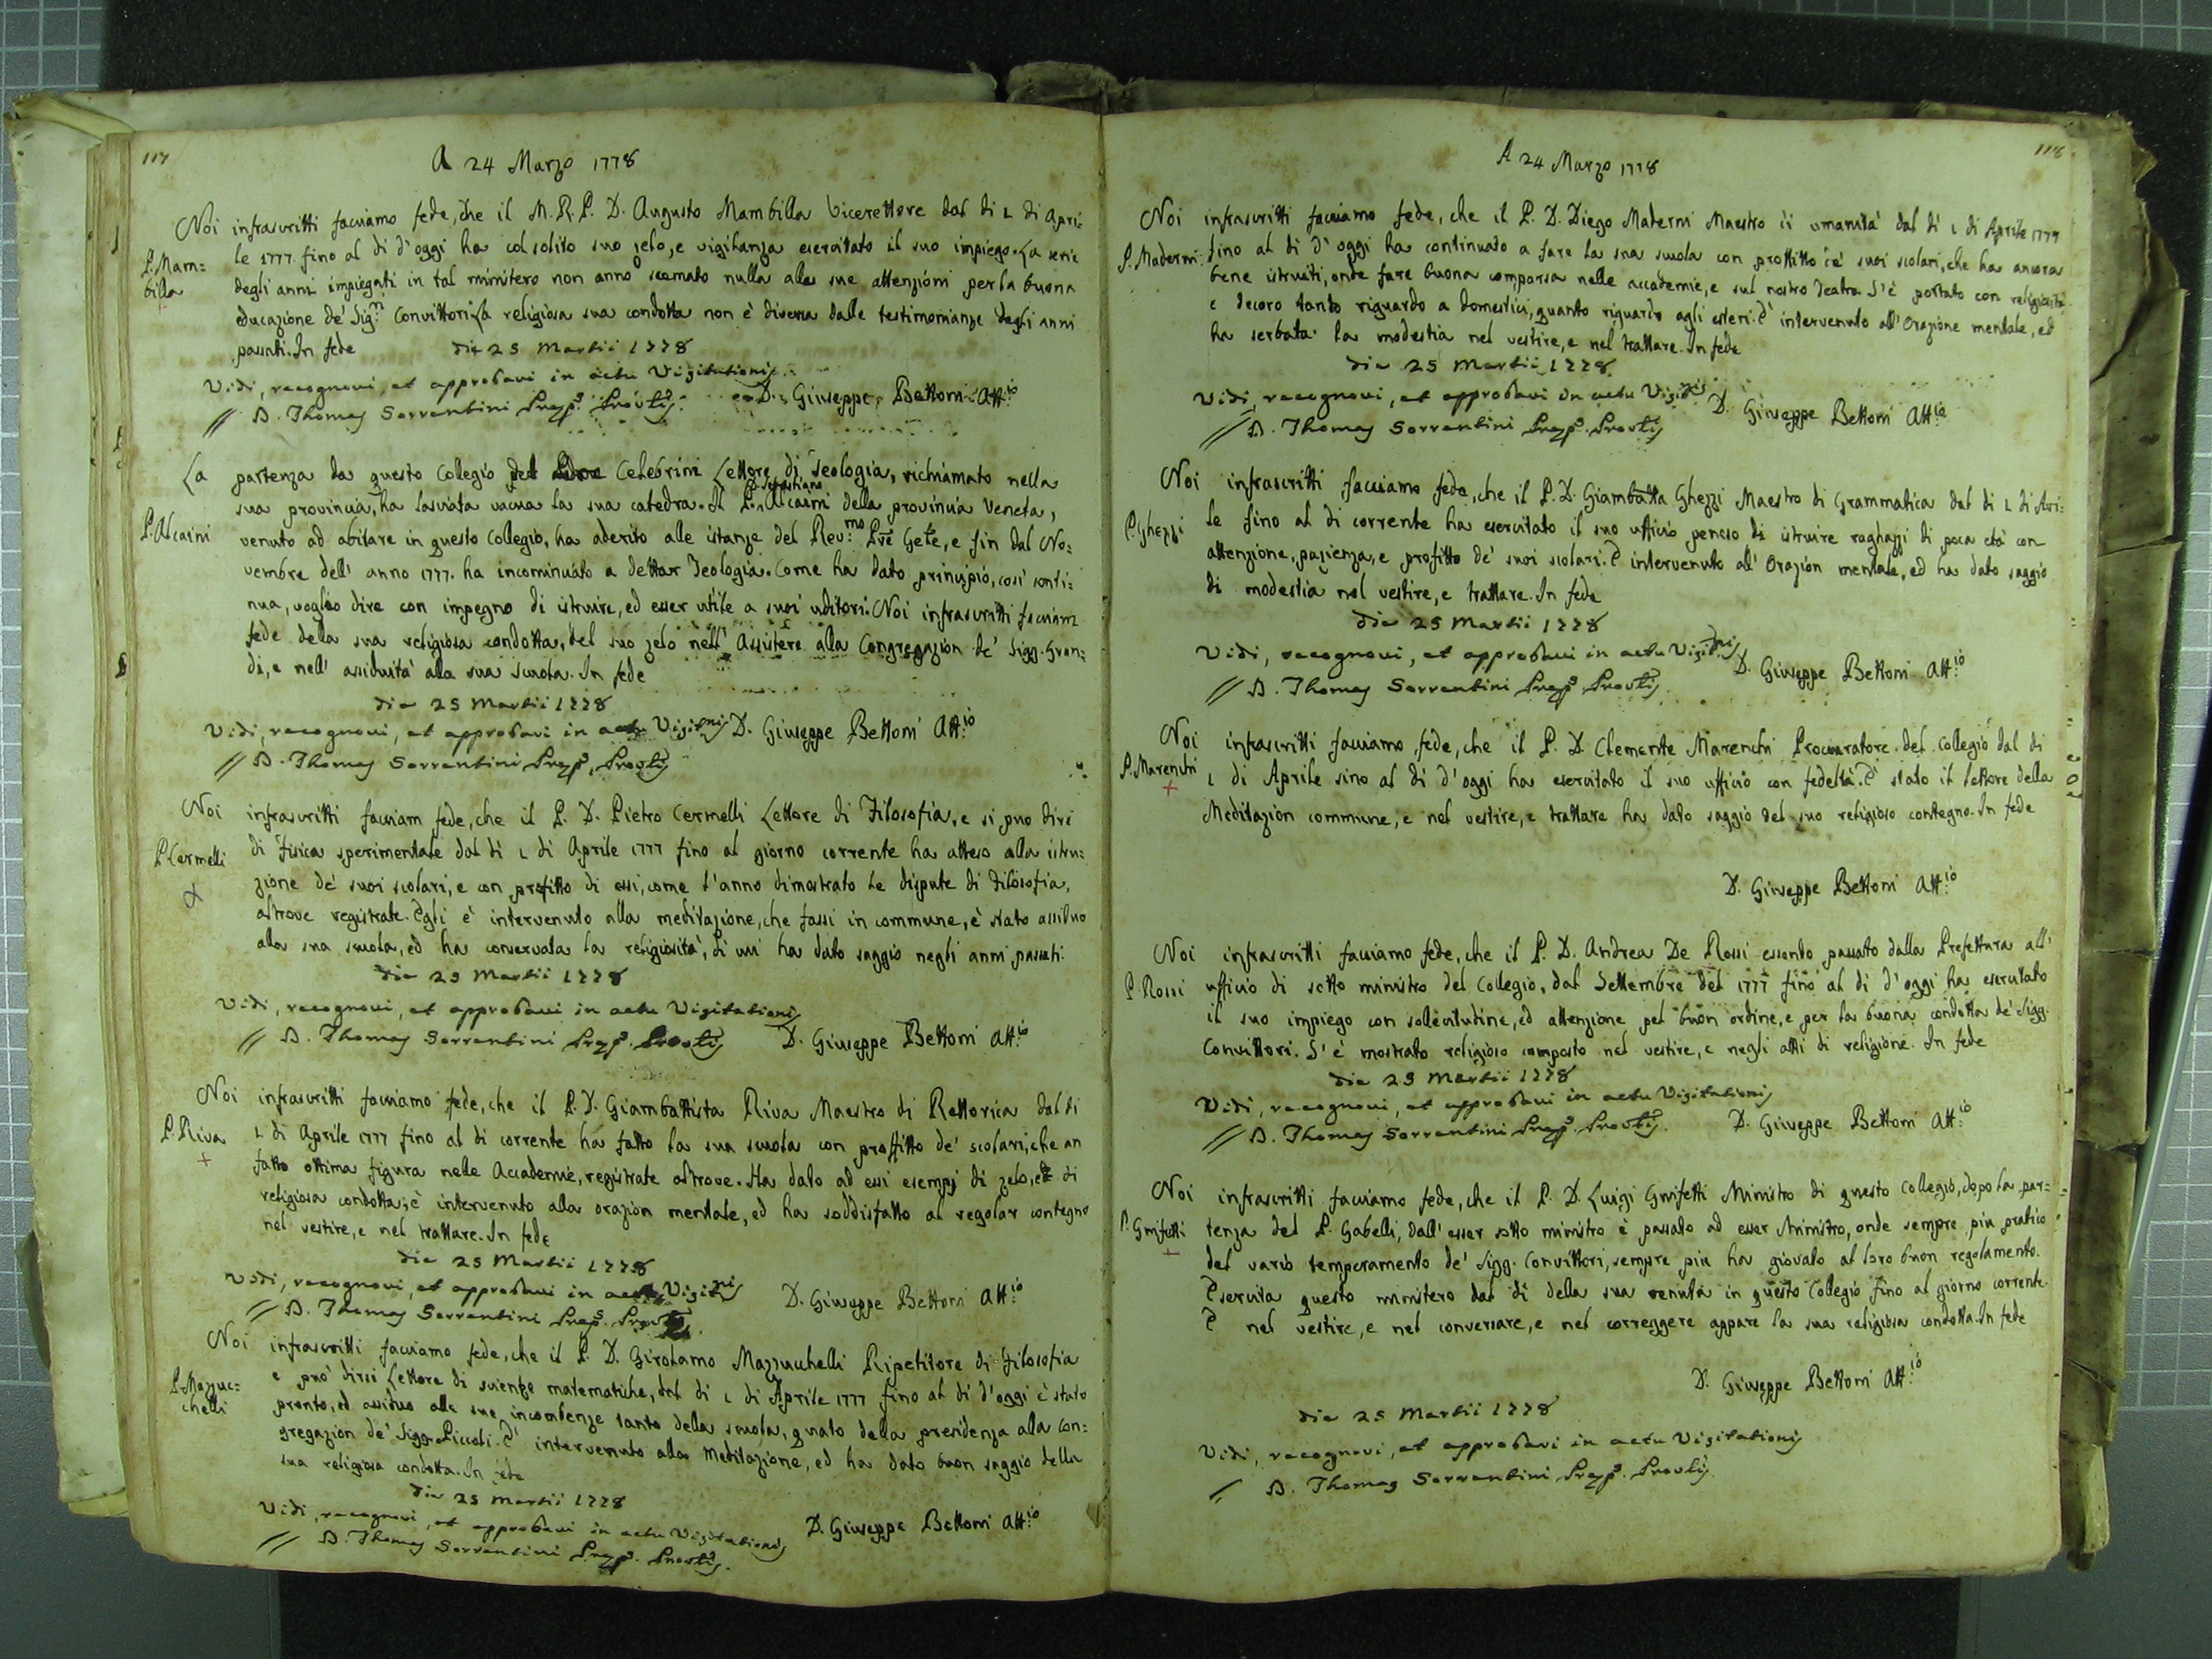 117
A 24 Marzo 1778
Noi infrascritti facciamo fede, che il M. R. P. D. Augusto Mambilla Vicerettore dal di 1 di Apri=
P. Mam=
billa
le 1777 fino al di d'oggi ha col solito suo zelo, e vigilanza esercitato il suo impiego. La serie
degli anni impiegati in tal ministero non anno scemato nulla alle sue attenzioni per la buona
educazione de' Sig.ri Convittori. La religiosa sua condotta non è diversa dalle testimonianze degli anni
passati. In fede
die 25 Martii 1778
Vidi, recognovi, et approbavi in actu Visitationis
D. Giuseppe Bettoni Att.io
// D. Thomas Sorrentini Prep.s Prov.lis
La partenza da questo Collegio del Padre Celebrini Lettore di Teologia, richiamato nella
sua provincia, ha lasciata vacua la sua catedra. Il P. D. Sebastiano Alcaini della provincia Veneta,
P. Alcaini
venuto ad abitare in questo Collegio, ha aderito alle istanze del Rev.mo Pre Gele, e fin dal No=
vembre dell' anno 1777. ha incominciato a dettar Teologia. Come ha dato principio, così conti=
nua, voglio dire con impegno di istruire, ed esser utile a suoi uditori. Noi infrascritti facciam
fede della sua religiosa condotta, del suo zelo nell' Assistere alla Congregazion de' Sigg. Gran=
di, e nell' assiduità alla sua scuola. In fede
die 25 Martii 1778
Vidi, recognovi, et approbavi in actu Visit.nis
D. Giuseppe Bettoni Att.io
// D. Thomas Sorrentini Prep.s Prov.lis
Noi infrascritti facciam fede, che il P. D. Pietro Cermelli Lettore di Filosofia, e si può dire
P. Cermelli
di Fisica sperimentale dal di 1 di Aprile 1777 fino al giorno corrente ha atteso alla istru=
zione de' suoi scolari, e con profitto di essi, come l'anno dimostrato le dispute di Filosofia,
altrove registrate. Egli è intervenuto alla meditazione, che fassi in commune, è stato assiduo
alla sua scuola, ed ha conservata la religiosità, di cui ha dato saggio negli anni passati.
die 25 Martii 1778
Vidi, recognovi, et approbavi in actu Visitationis
// D. Thomas Sorrentini Prep.s Prov.lis
D. Giuseppe Bettoni Att.io
Noi infrascritti facciamo fede, che il P. D. Giambattista Riva Maestro di Rettorica dal di
P. Riva
1 di Aprile 1777 fino al di corrente ha fatto la sua scuola con proffitto de' scolari, che an
fatto ottima figura nelle Accademie, registrate altrove. Ha dato ad essi esempj di zelo, e di
religiosa condotta; è intervenuto alla orazion mentale, ed ha soddisfatto al regolar contegno
nel vestire, e nel trattare. In fede
die 25 Martii 1778
Vidi, recognovi, et approbavi in actu Visit.nis
D. Giuseppe Bettoni Att.io
// D. Thomas Sorrentini Prep.s Prov.lis
Noi infrascritti facciamo fede, che il P. D. Girolamo Mazzucchelli Ripetitore di Filosofia
P. Mazzuc=
chelli
e può dirsi Lettore di scienze matematiche, dal di 1 di Aprile 1777 fino al di d'oggi è stato
pronto, ed assiduo alle sue incombenze tanto della scuola, quato della presidenza alla Con=
gregazion de' Sigg. Piccoli. E' intervenuto alla Meditazione, ed ha dato buon saggio della
sua religiosa condotta. In fede
die 25 Martii 1778
Vidi, recognovi, et approbavi in actu Visitationis
D. Giuseppe Bettoni Att.io
// D. Thomas Sorrentini Prep.s Prov.lis
118
A 24 Marzo 1778
Noi infrascritti facciamo fede, che il P. D. Diego Maderni Maestro di umanità dal di 1 di Aprile 1777
P. Maderni
fino al di d'oggi ha continuato a fare la sua scuola con proffitto de' suoi scolari, che ha ancora
bene istruiti, onde fare buona comparsa nelle accademie, e sul nostro Teatro. S'è portato con religiosità
e decoro tanto riguardo a domestici, quanto riguardo agli esteri. E' intervenuto all' Orazione mentale, ed
ha serbata la modestia nel vestire, e nel trattare. In fede
die 25 Martii 1778
Vidi, recognovi, et approbavi in actu Visit.nis
D. Giuseppe Bettoni Att.io
// D. Thomas Sorrentini Prep.s Prov.lis
Noi infrascritti facciamo fede, che il P. D. Giambatta Ghezzi Maestro di Grammatica dal di 1 di Apri=
P. Ghezzi
le fino al di corrente ha esercitato il suo ufficio penoso di istruire ragazzi di poca età con
attenzione, pazienza, e profitto de' suoi scolari. E' intervenuto all' Orazion mentale, ed ha dato saggio
di modestia nel vestire, e trattare. In fede
die 25 Martii 1778
Vidi, recognovi, et approbavi in actu Visit.nis
D. Giuseppe Bettoni Att.io
// D. Thomas Sorrentini Prep.s Prov.lis
Noi infrascritti facciamo fede, che il P. D. Clemente Marenchi Procuratore del Collegio dal di
P. Marenchi
1 di Aprile sino al di d'oggi ha esercitato il suo ufficio con fedeltà. E' stato il lettore della
Meditazion commune, e nel vestire, e trattare ha dato saggio del suo religioso contegno. In fede
D. Giuseppe Bettoni Att.io
Noi infrascritti facciamo fede, che il P. D. Andrea De Rossi essendo passato dalla Prefettura all'
P. Rossi
ufficio di sotto ministro del Collegio, dal Settembre del 1777 fino al di d'oggi ha esercitato
il suo impiego con sollecitudine, ed attenzione pel buon ordine, e per la buona condotta de' Sigg.
Convittori. S'è mostrato religioso composto nel vestire, e negli atti di religione. In fede
die 25 Martii 1778
Vidi, recognovi, et approbavi in actu Visitationis
D. Giuseppe Bettoni Att.io
// D. Thomas Sorrentini Prep.s Prov.lis
Noi infrascritti facciamo fede, che il P. D. Luigi Gnifetti Ministro di questo Collegio, dopo la par=
P. Gnifetti
tenza del P. Gabelli, dall' esser sotto ministro è passato ad esser Ministro, onde sempre più pratico
del vario temperamento de' Sigg. Convittori, sempre più ha giovato al loro buon regolamento.
Esercita questo ministero dal di della sua venuta in questo Collegio fino al giorno corrente.
E nel vestire, e nel conversare, e nel correggere appare la sua religiosa condotta. In fede
D. Giuseppe Bettoni Att.io
die 25 Martii 1778
Vidi, recognovi, et approbavi in actu Visitationis
/ D. Thomas Sorrentini Prep.s Prov.lis